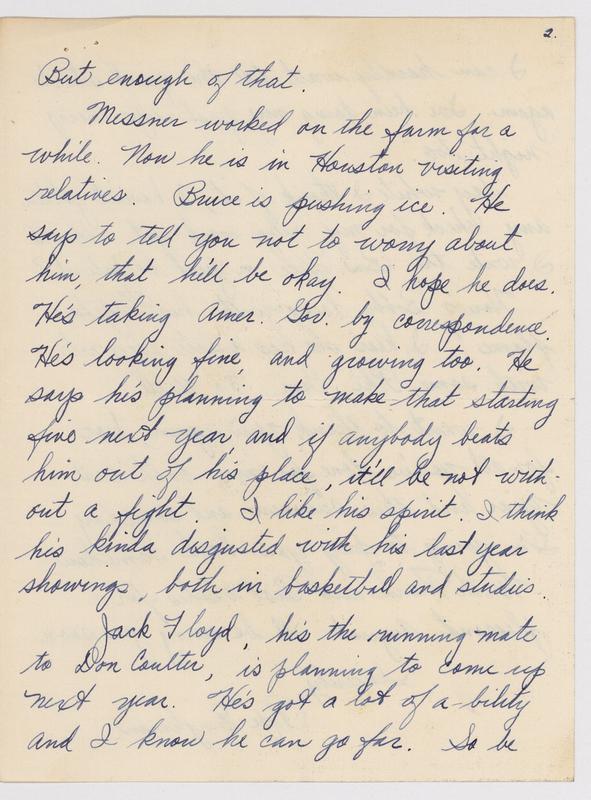 2.
But enough of that.
Messner worked on the farm for a
while. Now he is in Houston visiting
relatives. Bruce is pushing ice. He
says to tell you not to worry about
him, that he'll be okay. I hope he does.
He's taking Amer. Gov. by correspondence
He's looking fine, and growing too. He
says he's planning to make that starting
five next year, and if anybody beats
him out of his place, it'll be not with-
out a fight. I like his spirit. I think
his kinda disgusted with his last year
showings, both in basketball and studies.
Jack Floyd, his the running mate
to Don Coulter, is planning to come up
next year. He's got a lot of a-bility
and I know he can go far. So be